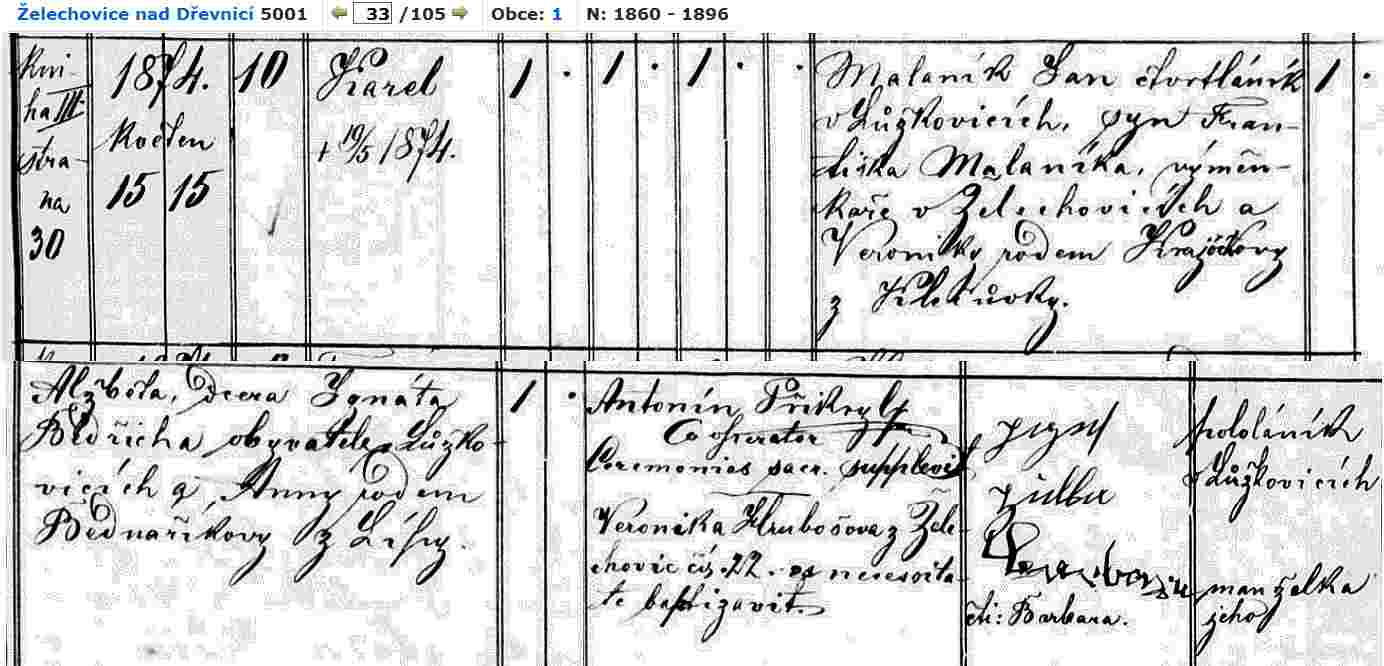 Želechovice nad Dřevnicí 5001 33 /105 Obce: 1 N: 1860 - 1896
Kni-
ha III.
stra-
na
30
1874.
Květen
15 15
10
Karel
+ 19/5 1874.
1 . 1 . 1 . .
Malaník Jan čtvrtláník
v Lůžkovicích, syn Fran-
tiška Malaníka, výměn-
kaře v Želechovicích a
Veroniky rodem Krajíčkovy
z Klečůvky.
1 .
Alžběta, dcera Ignáta
Bedřicha obyvatele v Lůžko-
vicích a Anny rodem
Bednaříkovy z Lípy.
1 .
Antonín Přikryl
Cooperator
Ceremonias sacr. supplevit
Veronika Hrubošova z Žele-
chovic čís. 22. ex necessita-
te baptizavit.
čti: Barbara.
pololáník
v Lůžkovicích
manželka
jeho